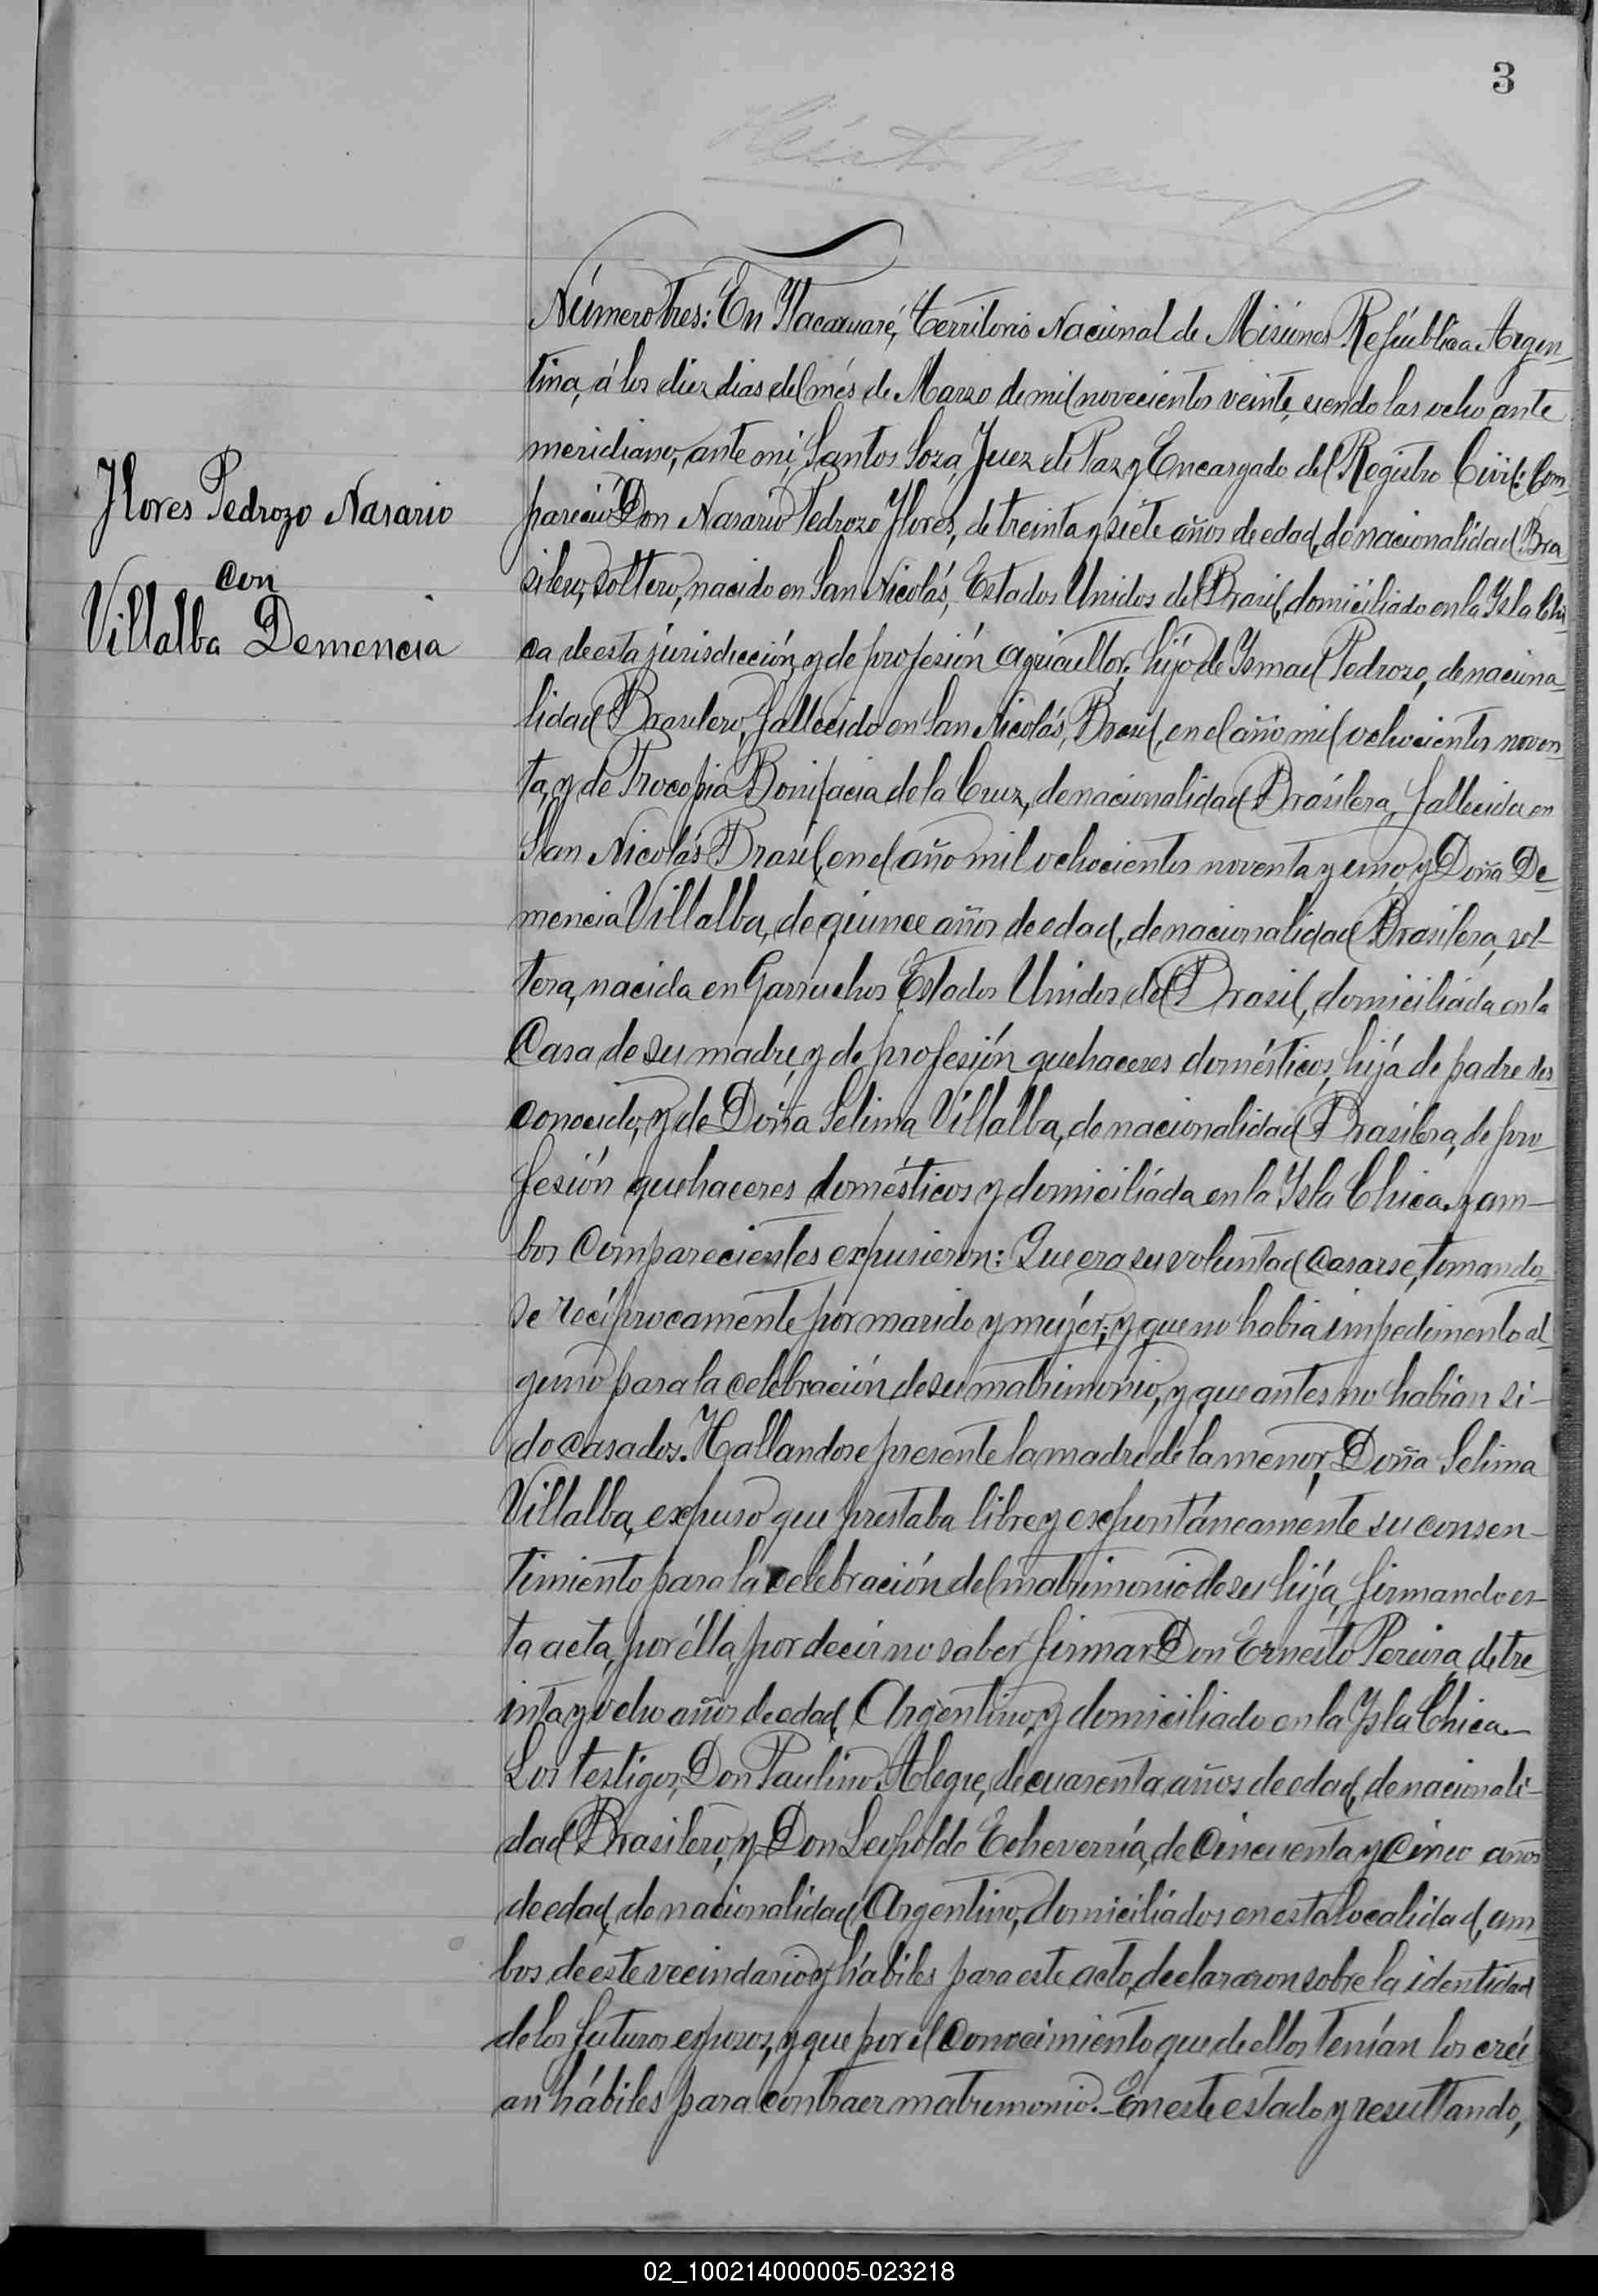 3
Número tres: En Ytacaruaré, territorio Nacional de Misiones República Argen-
tina, á los diez dias del més de Marzo de mil novecientos veinte, siendo las ocho ante
meridiano, ante mi, Santos Soza, Juez de Paz y Encargado del Registro Civil: Com-
pareció Don Nasario Pedrozo Flores, de treinta y siete años de edad, de nacionalidad Bra
silero, soltero, nacido en San Nicolás, Estados Unidos del Brasil, domiciliado en la Ysla Chi-
ca de esta jurisdicción, y de profesión agricultor; hijo de Ysmael Pedrozo, de naciona-
lidad Brasilero, fallecido en San Nicolás, Brasil, en el año mil ochocientos noven-
ta, y de Procopia Bonifacia de la Cruz, de nacionalidad Brasilera, fallecida en
San Nicolás Brasil, en el año mil ochocientos noventa y uno, y Doña De-
mencia Villalba, de quince años de edad, de nacionalidad Brasilera, sol-
tera, nacida en Garruchos Estados Unidos del Brasil, domiciliada en la
Casa de su madre, y de profesión quehaceres domésticos, hija de padre des
conocido, y de Doña Selima Villalba, de nacionalidad Brasilera, de pro-
fesión quehaceres domésticos y domiciliada en la Ysla Chica. y am-
bos Comparecientes expusieron: Que era su voluntad Casarse, tomando-
se recíprocamente por marido y mujer; y que no habia impedimento al
guno para la celebración de su matrimonio, y que antes no habían si-
do casados. Hallandose presente la madre de la menor, Doña Selima
Villalba, expuso que prestaba libre y expontáneamente su consen-
timiento para la celebración del matrimonio de su hija, firmando es-
ta acta, por élla, por decir no saber firmar Don Ernesto Pereira, de tre
inta y ocho años de edad, Argentino, y domiciliado en la Ysla Chica.-
Los testigos, Don Paulino Alegre, de cuarenta años de edad, de nacionali-
dad Brasilero, y Don Leopoldo Echeverría, de Cincuenta y Cinco años
de edad, de nacionalidad Argentino, domiciliados en esta localidad, am
bos de este vecindario y hábiles para este acto, declararon sobre la identidad
de los futuros esposos, y que por el Conocimiento que de ellos tenían los creí
an hábiles para contraer matrimonio.- En este estado y resultando,
Flores Pedrozo Nasario
con
Villalba Demencia
02_100214000005-023218